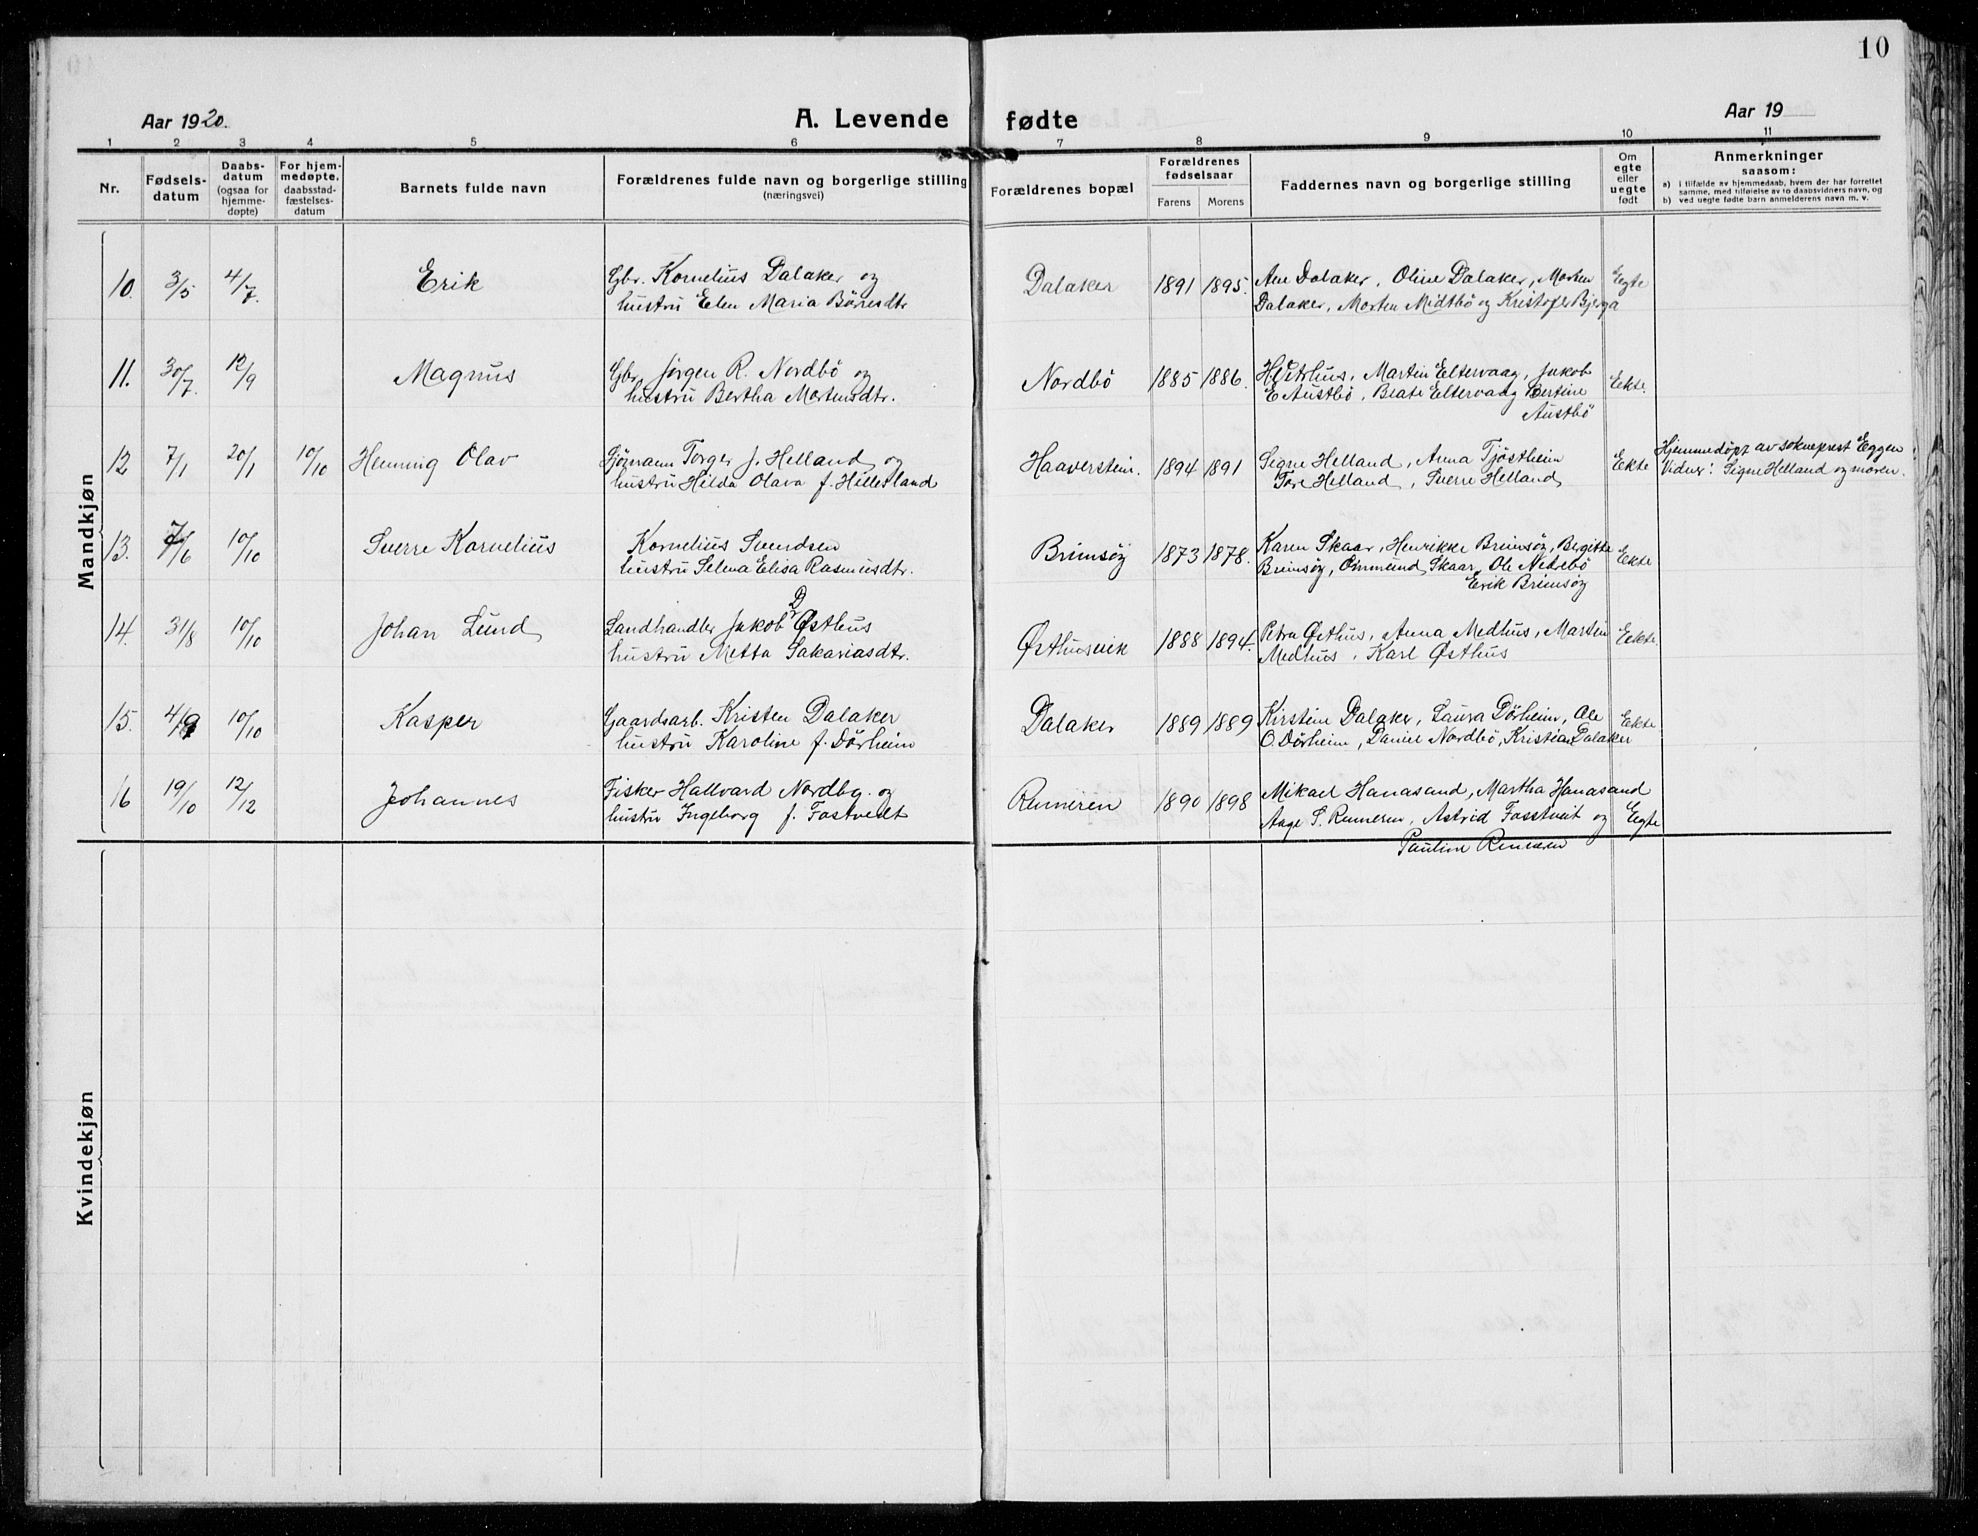 10
Aar 1920.
A. Levende fødte
Aar 19
1 2 3 4 5 6 7 8 9 10 11
Nr.
Fødsels-
datum
Daabs-
datum
(ogsaa for
hjemme-
døpte)
For hjem-
medøpte,
daabsstad-
fæstelses-
datum
Barnets fulde navn
Forældrenes fulde navn og borgerlige stilling
(næringsvei)
Forældrenes bopæl
Forældrenes
fødselsaar
Farens Morens
Faddernes navn og borgerlige stilling
Om
egte
eller
uegte
født
Anmerkninger
saasom:
a) i tilfælde av hjemmedaab, hvem der har forrettet
samme, med tilføielse av to daabsvidners navn, og
b) ved uegte fødte barn anmelderens navn m. v.
Mandkjøn
10. 3/5 4/7. Erik Gbr. Kornelius Dalaker og Dalaker 1891 1895. Ane Dalaker, Oline Dalaker, Morten Egte
hustru Elen Maria Børresdtr Dalaker, Morten Midtbö og Kristofer Bjerga
11. 30/7. 12/9 Magnus Gbr. Jörgen R. Nordbö og Nordbö 1885 1886. Martin Eltervaag, Jakob Ekte.
hustru Bertha Mortensdtr. E Austbö, Beate Eltervaag Bertine
Austbö
12 7/1 20/1 10/10 Henning Olav Sjømann Torger J. Helland og Haaverstein. 1894 1891 Signe Helland, Anna Tjöstheim Ekte Hjemmedöpt av sokneprest Eggen
hustru Hilda Olava f. Hillesland Tore Helland, Sverre Helland Vidner: Signe Helland og moren.
13. 7/6 10/10 Sverre Kornelius Kornelius Svendsen Brimsöy 1873 1878. Karen Skaar, Henrikke Brimsöy, Bergitte Ekte
hustru Selma Elisa Rasmusdtr. Brimsöy, Ommund Skaar, Ole Nedebö
Erik Brimsöy
14. 31/8 10/10 Johan Lund Landhandler Jakob D Østhus Østhusvik 1888 1894. Petra Østhus, Anna Medhus, Martin Ekte.
hustru Metta Sakariasdtr. Medhus, Karl Østhus
15. 4/9 10/10 Kasper Gaardsarb. Kristen Dalaker Dalaker 1889 1889 Kirstine Dalaker, Laura Dörheim, Ole Ekte
hustru Karoline f. Dörheim O. Dörheim, Daniel Nordbö, Kristian Dalaker
16 19/10 12/12 Johannes Fisker Hallvard Nordbø. og Rennaren 1890 1898 Mikael Hanasand, Martha Hanasand
hustru Ingeborg f. Fastvedt Aage S. Rennaren, Astrid Fosstveit og Egte
Pauline Rennaren
Kvindekjøn